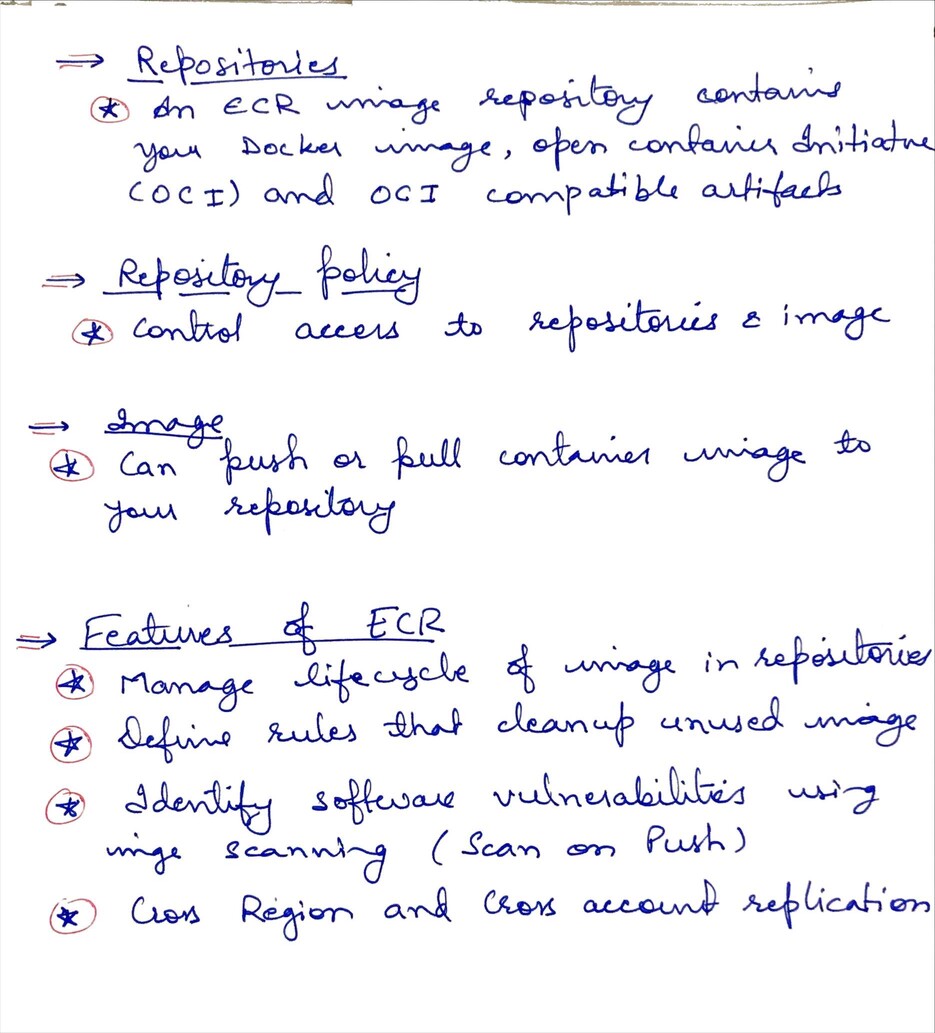 ⇒ Repositories
* An ECR image repository contains
your Docker image, open container Initiative
(OCI) and OCI compatible artifacts
⇒ Repository policy
* Control access to repositories & image
⇒ Image
* Can push or pull container image to
your repository
⇒ Features of ECR
* Manage lifecycle of image in repositories
* Define rules that cleanup unused image
* Identify software vulnerabilities using
imge scanning (Scan on Push)
* Cross Region and Cross account replication